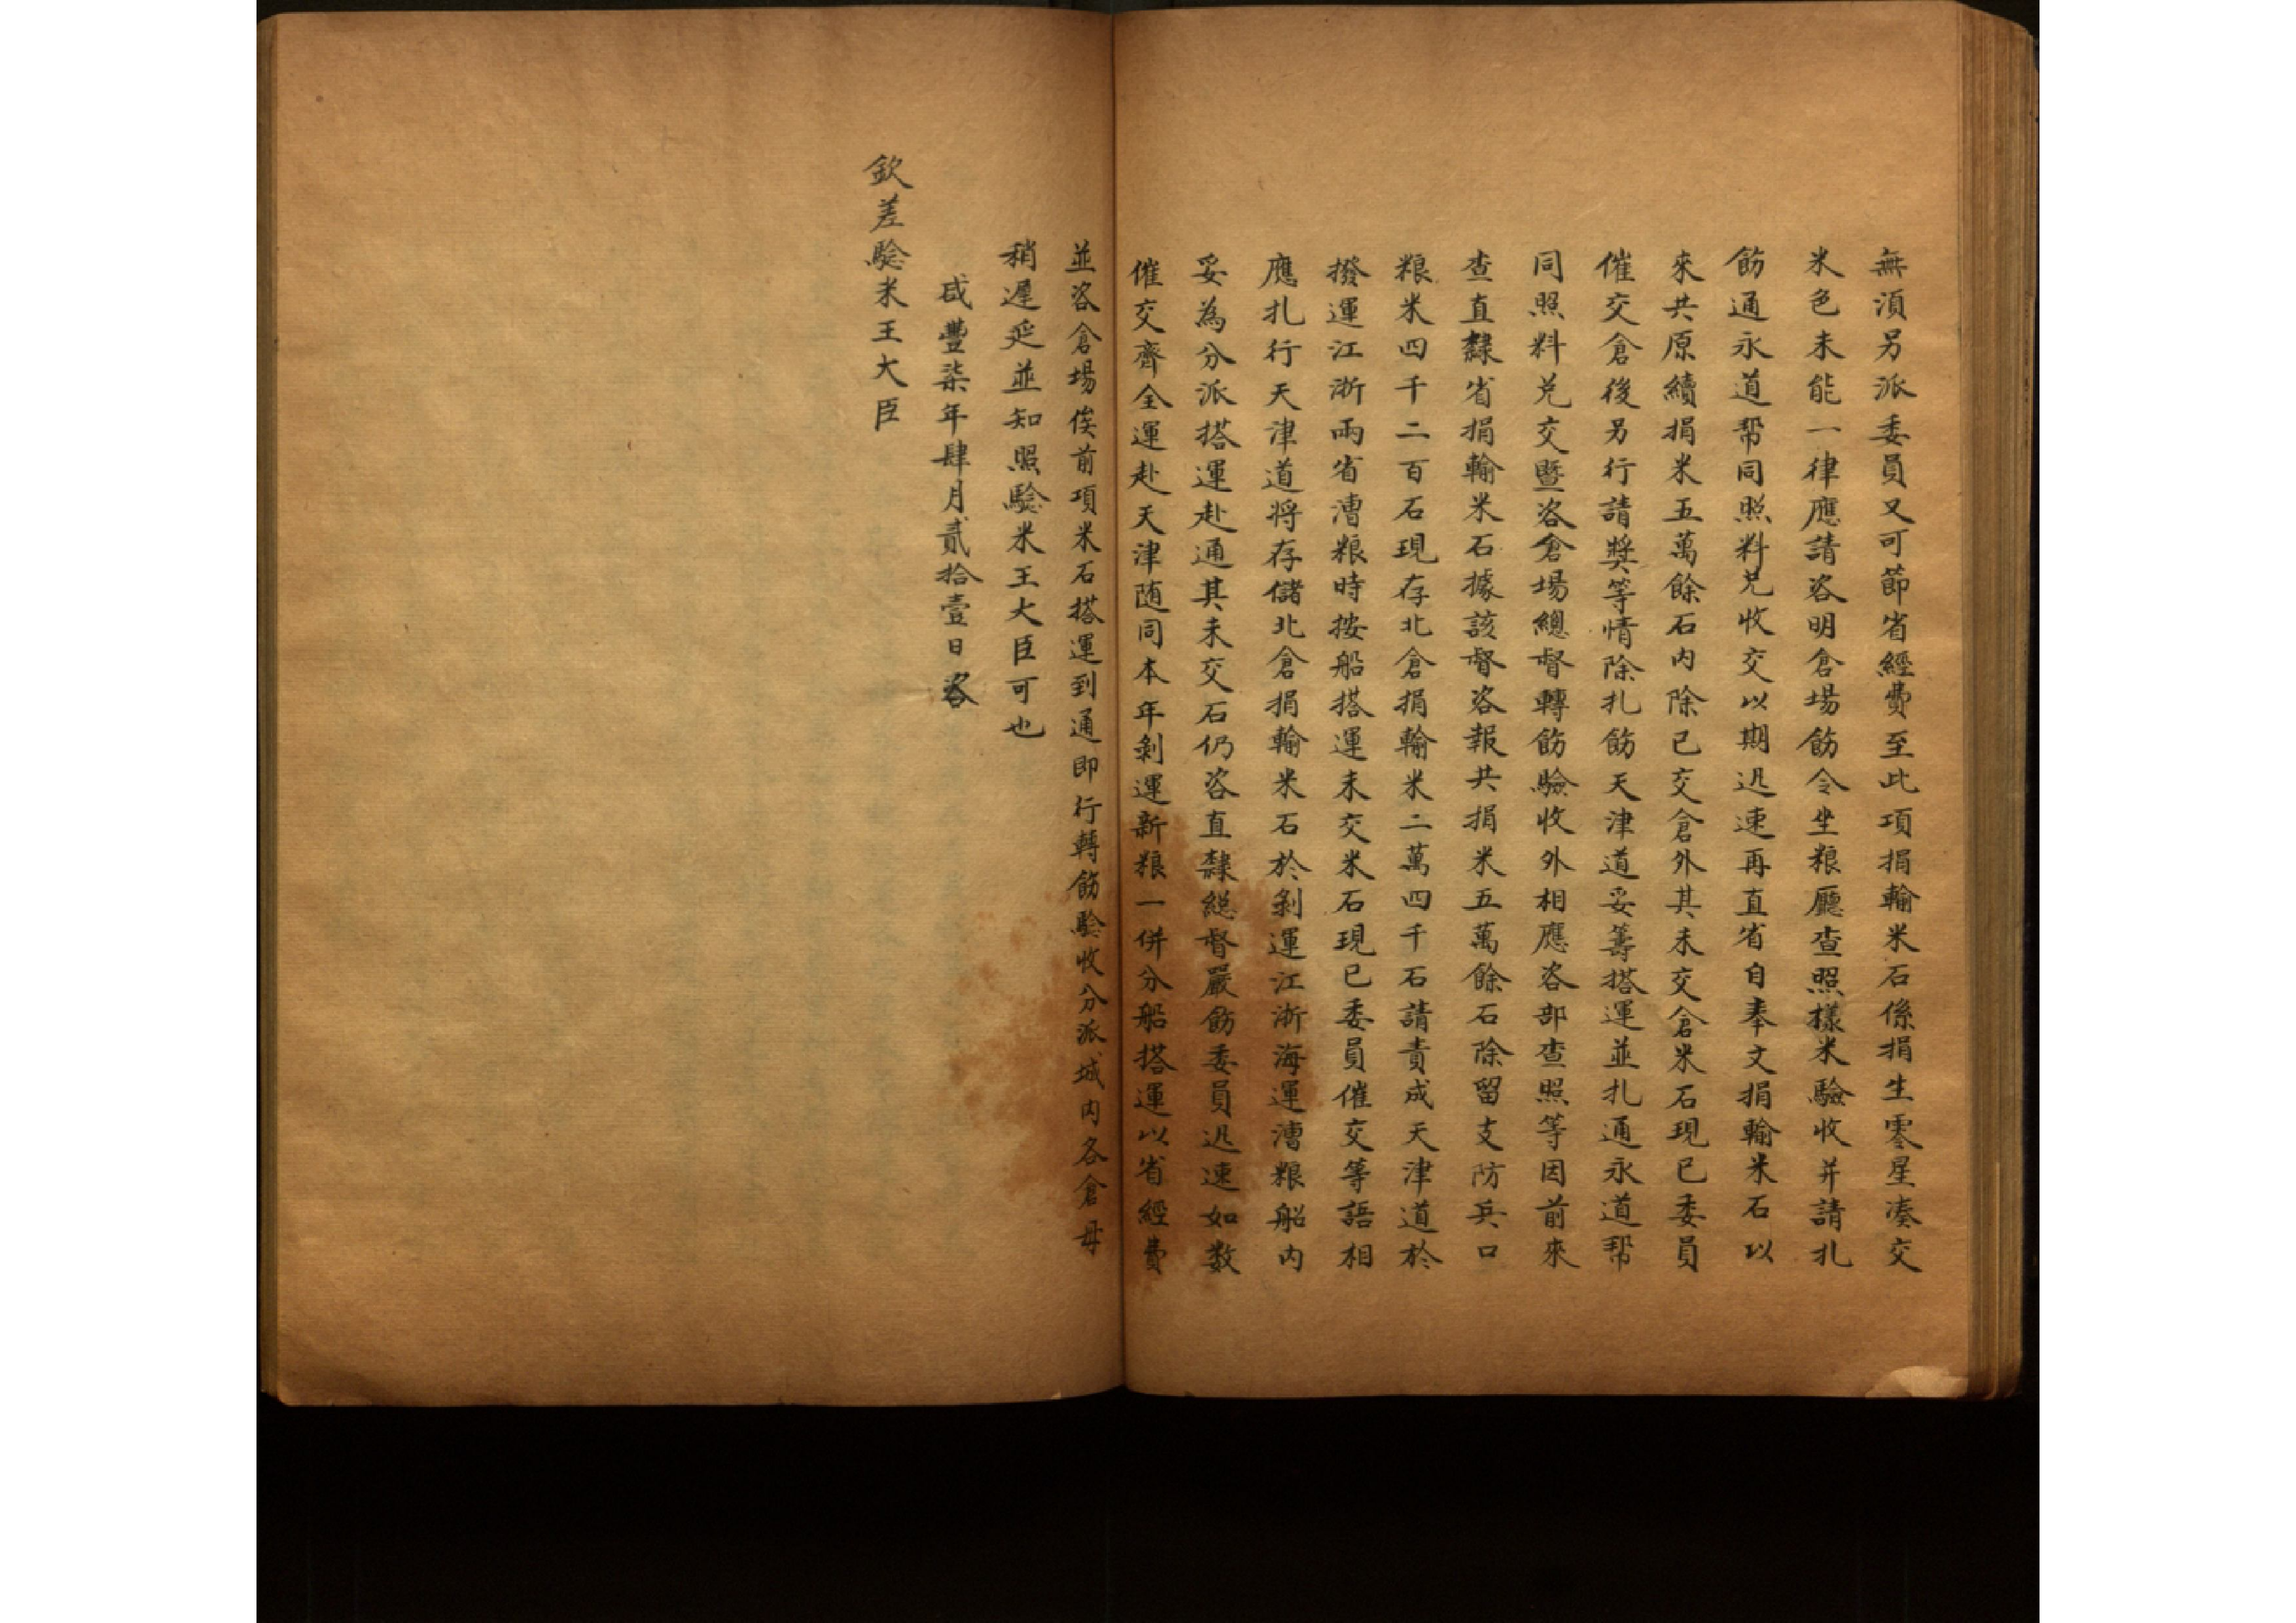 無須另派委員又可節省經費至此項捐輸米石係捐生零星湊交
米色未能一律應請咨明倉場飭令坐粮廳查照樣米驗收并請扎
飭通永道帮同照料兑收交以期迅速再直省自奉文捐輸米石以
來共原續捐米五萬餘石内除已交倉外其未交倉米石現已委員
催交倉後另行請奬等情除扎飭天津道妥籌搭運並扎通永道帮
同照料兑交暨咨倉場總督轉飭驗收外相應咨部查照等因前來
查直隸省捐輸米石據該督咨報共捐米五萬餘石除留支防兵口
粮米四千二百石現存北倉捐輸米二萬四千石請責成天津道於
撥運江浙兩省漕粮時按船搭運未交米石現已委員催交等語相
應扎行天津道将存儲北倉捐輸米石於剝運江浙海運漕粮船内
妥為分派搭運赴通其未交石仍咨直隸総督嚴飭委員迅速如数
催交齊全運赴天津随同本年剝運新粮一併分船搭運以省經費
並咨倉場俟前項米石搭運到通即行轉飭驗收分派城内各倉毋
稍遲延並知照驗米王大臣可也
咸豐柒年肆月貳拾壹日咨
欽差驗米王大臣